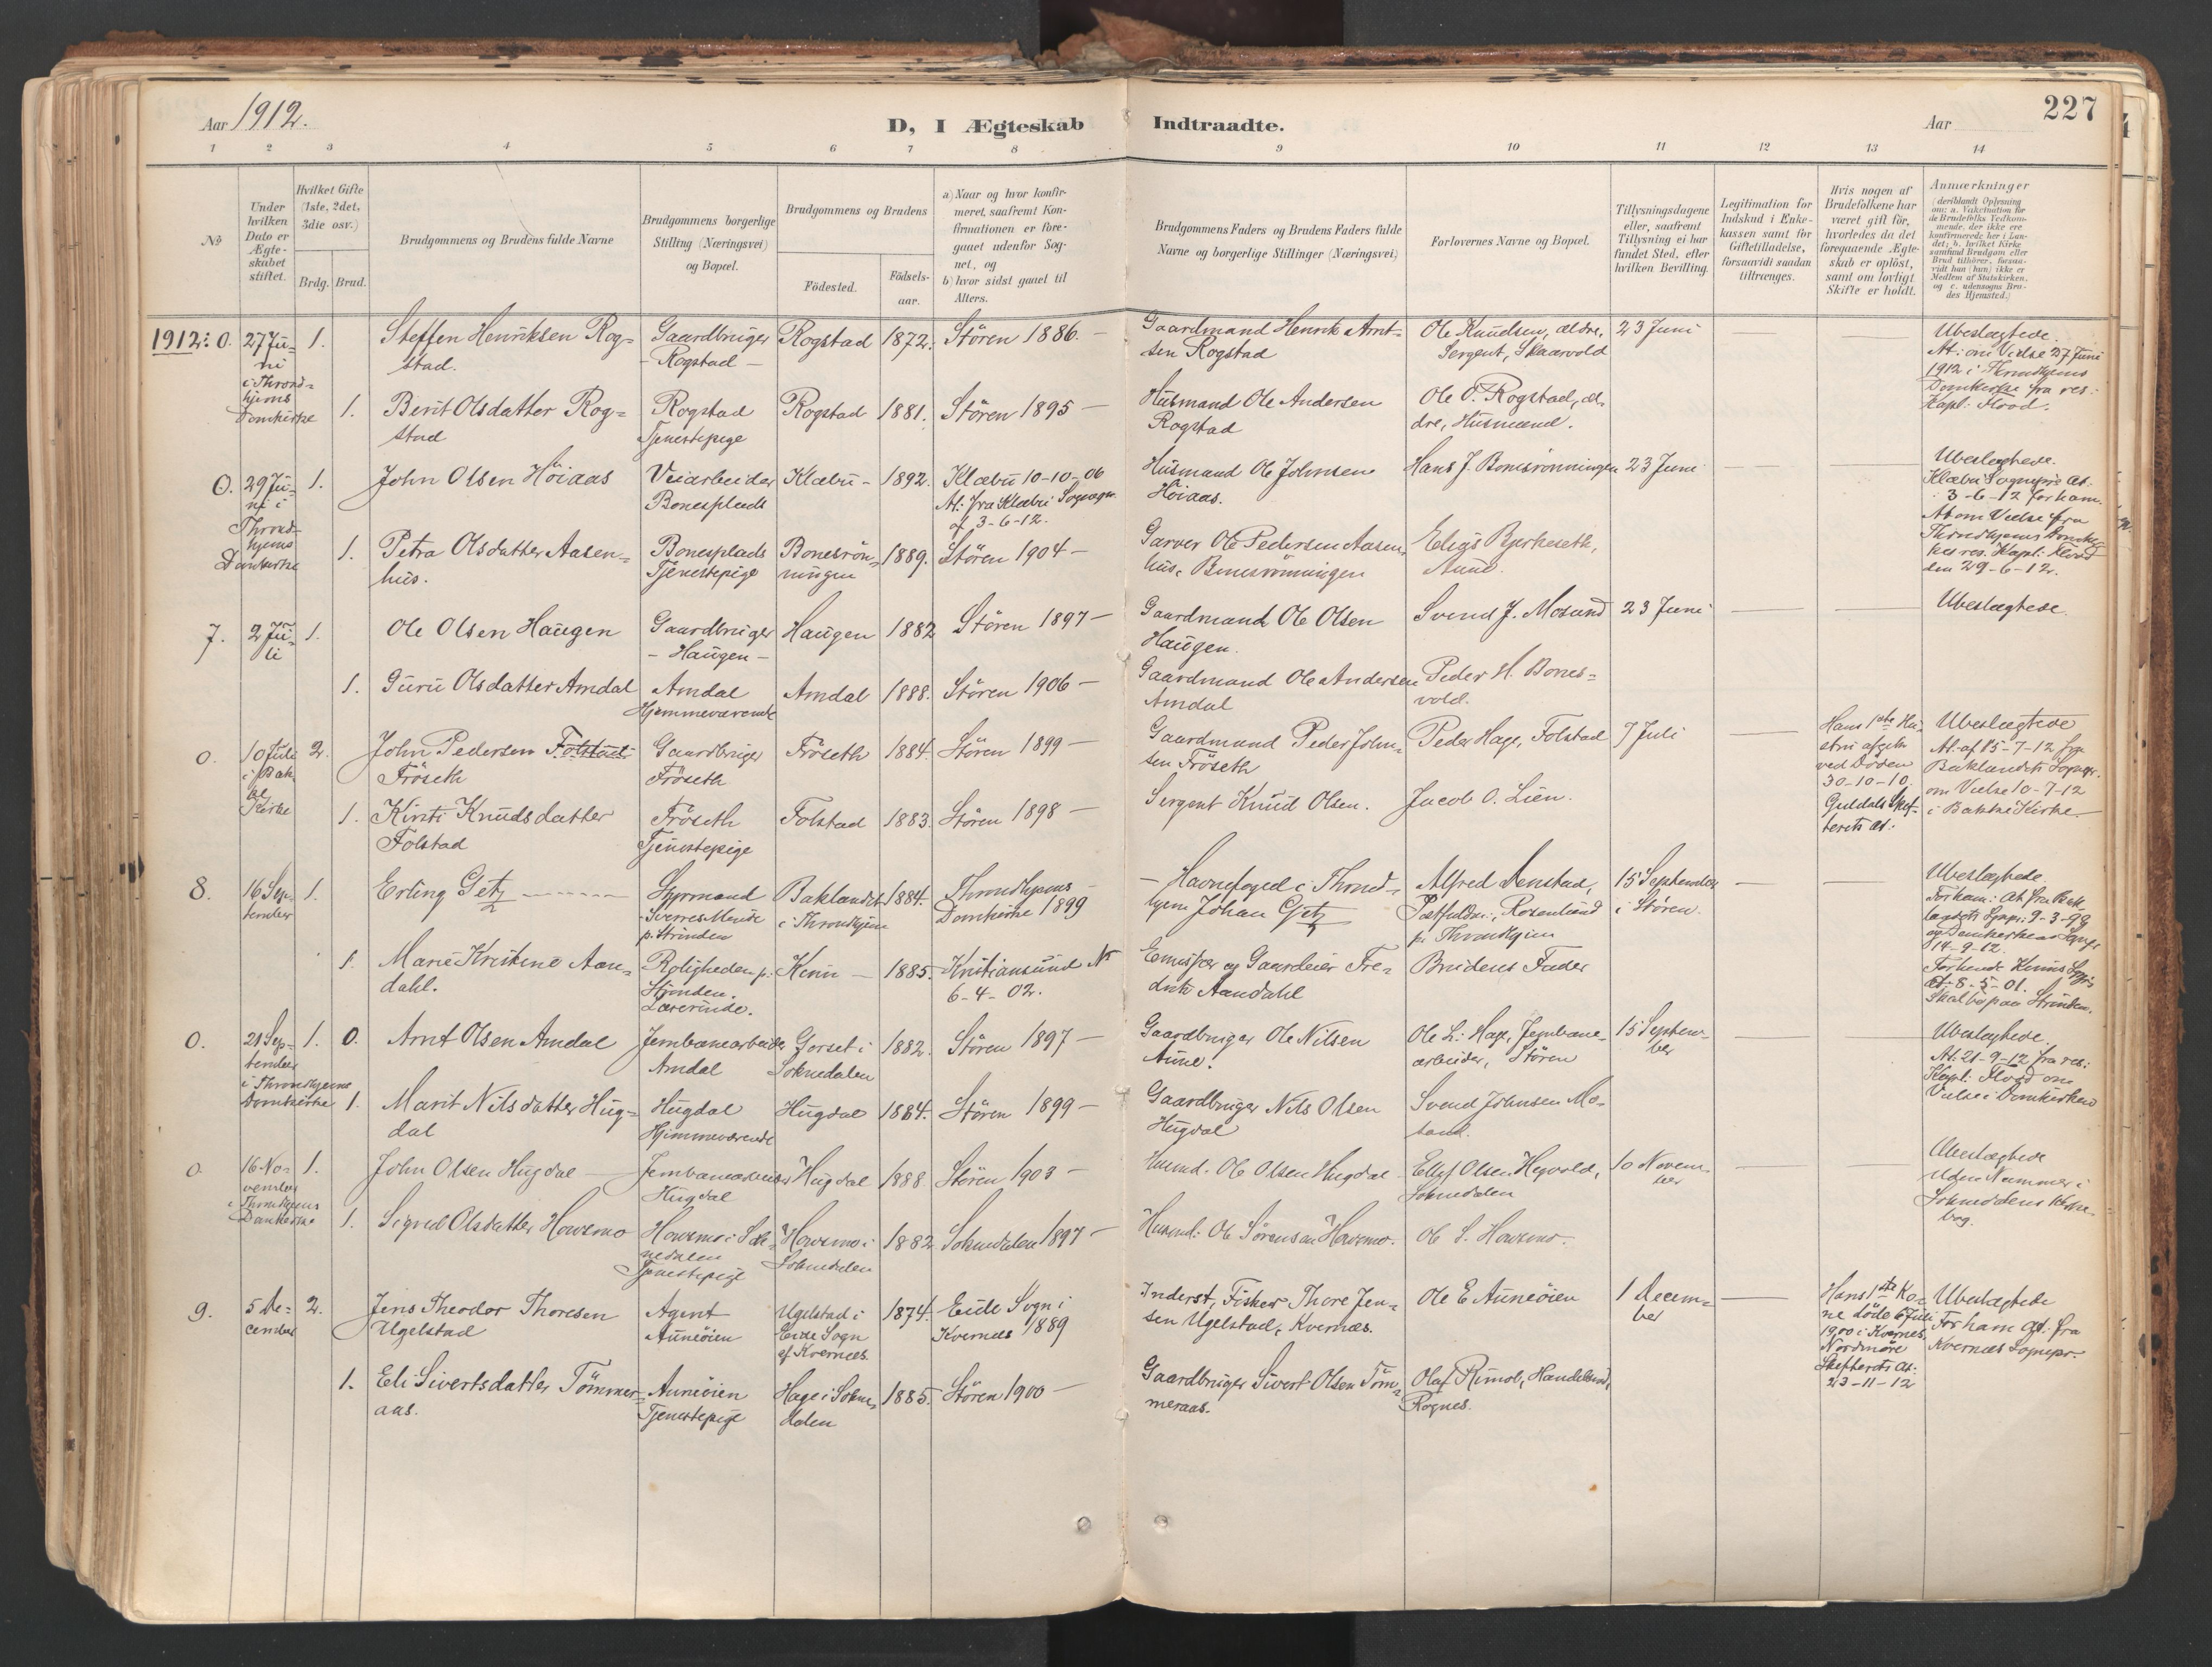 Aar 1912.
D, I Ægteskab Indtraadte.
Aar
227
1 2 3 4 5 6 7 8 9 10 11 12 13 14
№
Under hvilken Dato er Ægteskabet stiftet.
Hvilket Gifte (1ste, 2det, 3die osv.)
Brdg. Brud.
Brudgommens og Brudens fulde Navne
Brudgommens borgerlige Stilling (Næringsvei) og Bopæl.
Brudgommens og Brudens
Födested.
Födsels-aar.
a) Naar og hvor konfirmeret, saafremt Konfirmationen er foregaaet udenfor Sognet, og
b) hvor sidst gaaet til Alters.
Brudgommens Faders og Brudens Faders fulde Navne og borgerlige Stillinger (Næringsvei)
Forlovernes Navne og Bopæl.
Tillysningsdagene eller, saafremt Tillysning ei har fundet Sted, efter hvilken Bevilling.
Legitimation for Indskud i Enkekassen samt for Giftetilladelse, forsaavidt saadan tiltrænges.
Hvis nogen af Brudefolkene har været gift för, hvorledes da det foregaaende Ægteskab er oplöst, samt om lovligt Skifte er holdt.
Anmærkninger (deriblandt Oplysning om: a. Vakcination for de Brudefolks Vedkommende, der ikke ere konfirmerede her i Landet; b. hvilket Kirkesamfund Brudgom eller Brud tilhörer, forsaavidt han (hun) ikke er Medlem af Statskirken, og c. udensogns Brudes Hjemsted.)
1912: 0. 27 Juni i Throndhjems Domkirke 1. Steffen Henriksen Rogstad. Gaardbruger Rogstad Rogstad 1872. Stören 1886. Gaardmand Henrik Arntsen Rogstad Ole Knudsen, ældre, Sergent, Skaarvold 23 Juni Ubeslægtede. At. om Vielse 27 Juni 1912 i Throndhjems Domkirke fra res. Kapl. Flood.
1. Berit Olsdatter Rogstad Rogstad Tjenestepige Rogstad 1881. Stören 1895 Husmand Ole Andersen Rogstad Ole O. Rogstad, ældre, Husmand.
0. 29 Juni i Throndhjems Domkirke 1. John Olsen Höiaas Veiarbeider Bonesplads Klæbu 1892. Klæbu 10-10-06 At. fra Klæbu Sognepr. af 3-6-12. Husmand Ole Johnsen Höiaas. Hans J. Bonesrönningen 23 Juni Ubeslægtede. Klæbu Sognepr. at. 3-6-12 for ham. At om Vielse fra Throndhjems Domkirkes res. Kapl. Flood den 29-6-12.
1. Petra Olsdatter Aasenhus. Bonesplads Tjenestepige Bonesrönningen 1889. Stören 1904 Garver Ole Pedersen Aasenhus, Bonesrönningen Elias Bjerkeseth, Aune.
7. 2 Juli 1. Ole Olsen Haugen Gaardbruger Haugen Haugen 1882 Stören 1897 Gaardmand Ole Olsen Haugen. Svend J. Mosand 23 Juni Ubeslægtede.
1. Guru Olsdatter Amdal Amdal Hjemmeværende Amdal 1888. Stören 1906 Gaardmand Ole Andersen Amdal Peder H. Bonesvold.
0. 10 Juli i Bakke Kirke 2. John Pedersen Folstad Fröseth Gaardbruger Fröseth Fröseth 1884. Stören 1899 Gaardmand Peder Johnsen Fröseth Peder Hage, Folstad 7 Juli Hans 1ste Hustru afgik ved Döden 30-10-10. Guldals Skifterets at. Ubeslægtede At. af 15-7-12 fra Baklandets Sognepr. om Vielse 10-7-12 i Bakke Kirke.
1. Kirsti Knudsdatter Folstad Fröseth Tjenestepige Folstad 1883. Stören 1898 Sergent Knud Olsen. Jacob O. Lien.
8. 16 September 1. Erling Getz Styrmand Sverres Minde p. Strinden Baklandet i Throndhjem 1884. Throndhjems Domkirke 1899 Havnefoged i Throndhjem Johan Getz Alfred Aenstad, Rosenlund p. Throndhjem 15 September i Stören. Ubeslægtede. For ham: At. fra Baklandets Sognepr. 9-3-98 og Domkirkens Sognepr. 14-9-12. For hende Kinns Sognepr. at. 8-5-01. Skal bo paa Strinden.
1. Marie Kristine Aandahl. Roligheden p. Strinden. Lærerinde. Kinn 1885. Kristiansund N 6-4-02. Emissær og Gaardeier Fredrik Aandahl Brudens Fader
0. 21 September i Throndhjems Domkirke 1. 0. Arnt Olsen Amdal Jernbanearbeider Amdal Gorset i Soknedalen 1882. Stören 1897 Gaardbruger Ole Nilsen Aune. Ole L. Hage, Jernbanearbeider, Stören 15 September Ubeslægtede. At. 21-9-12 fra res. Kapl. Flood om Vielse i Domkirken
1. Marit Nilsdatter Hugdal Hugdal Hjemmeværende Hugdal 1884. Stören 1899 Gaardbruger Nils Olsen Hugdal Svend Johnsen Mosand.
0. 16 November i Throndhjems Domkirke 1. John Olsen Hugdal Jernbanearbeider Hugdal Hugdal 1888. Stören 1903 Husmd. Ole Olsen Hugdal Ellef Olsen Hegvold, Soknedalen 10 November Ubeslægtede Uden Nummer i Soknedalens Kirkebog.
1. Sigrid Olsdatter Hovsmo Hovsmo i Soknedalen Tjenestepige Hovsmo i Soknedalen 1882 Soknedalen 1897 Husmd. Ole Sörensen Hovsmo. Ole S. Hovsmo.
9. 5 December 2. Jens Theodor Thoresen Ugelstad Agent Auneöien Ugelstad i Eide Sogn af Kvernæs 1874. Eide Sogn i Kvernæs 1889 Inderst, Fisker Thore Jensen Ugelstad, Kvernæs. Ole E Auneöien 1 December Hans 1ste Kone döde 6 Juli 1900 i Kvernes, Nordmöre Skifterets at. 23-11-12 Ubeslægtede For ham at. fra Kvernæs Sognepr.
1. Eli Sivertsdatter Tömmeraas. Auneöien Tjenestepige Hage i Soknedalen 1885. Stören 1900 Gaardbruger Sivert Olsen Tömmeraas. Olaf Rimol, Handelsmd, Rognes.